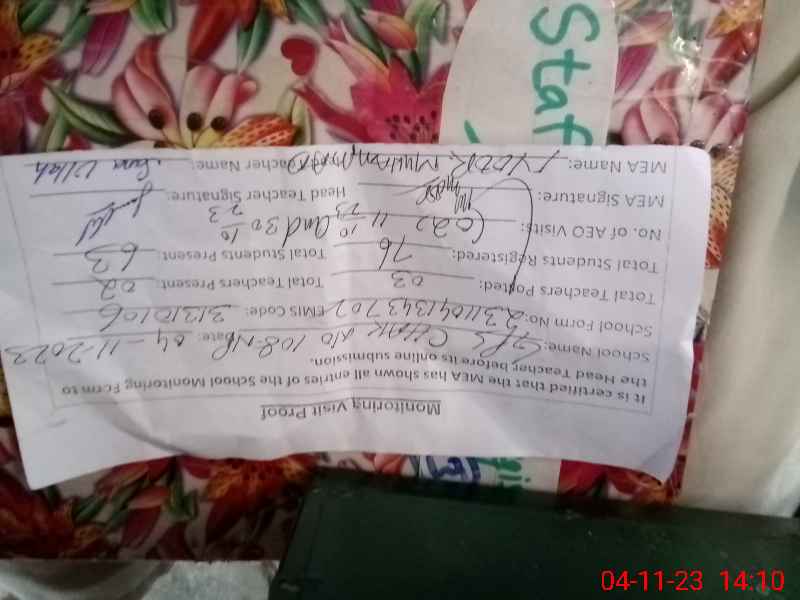 Monitoring Visit Proof
It is certified that the MEA has shown all entries of the School Monitoring Form to
the Head Teacher before its online submission.
School Name: GPS CHAK NO 108-NP Date: 04-11-2023
School Form No: 2311041343702 EMIS Code: 31310106
Total Teachers Posted: 03 Total Teachers Present: 02
Total Students Registered: 76 Total Students Present: 63
No. of AEO Visits: (02) 11 10 23 and 30 10 23
MEA Signature: Head Teacher Signature:
MEA Name: Muhammad Head Teacher Name: Ullah
Staf
04-11-23 14:10